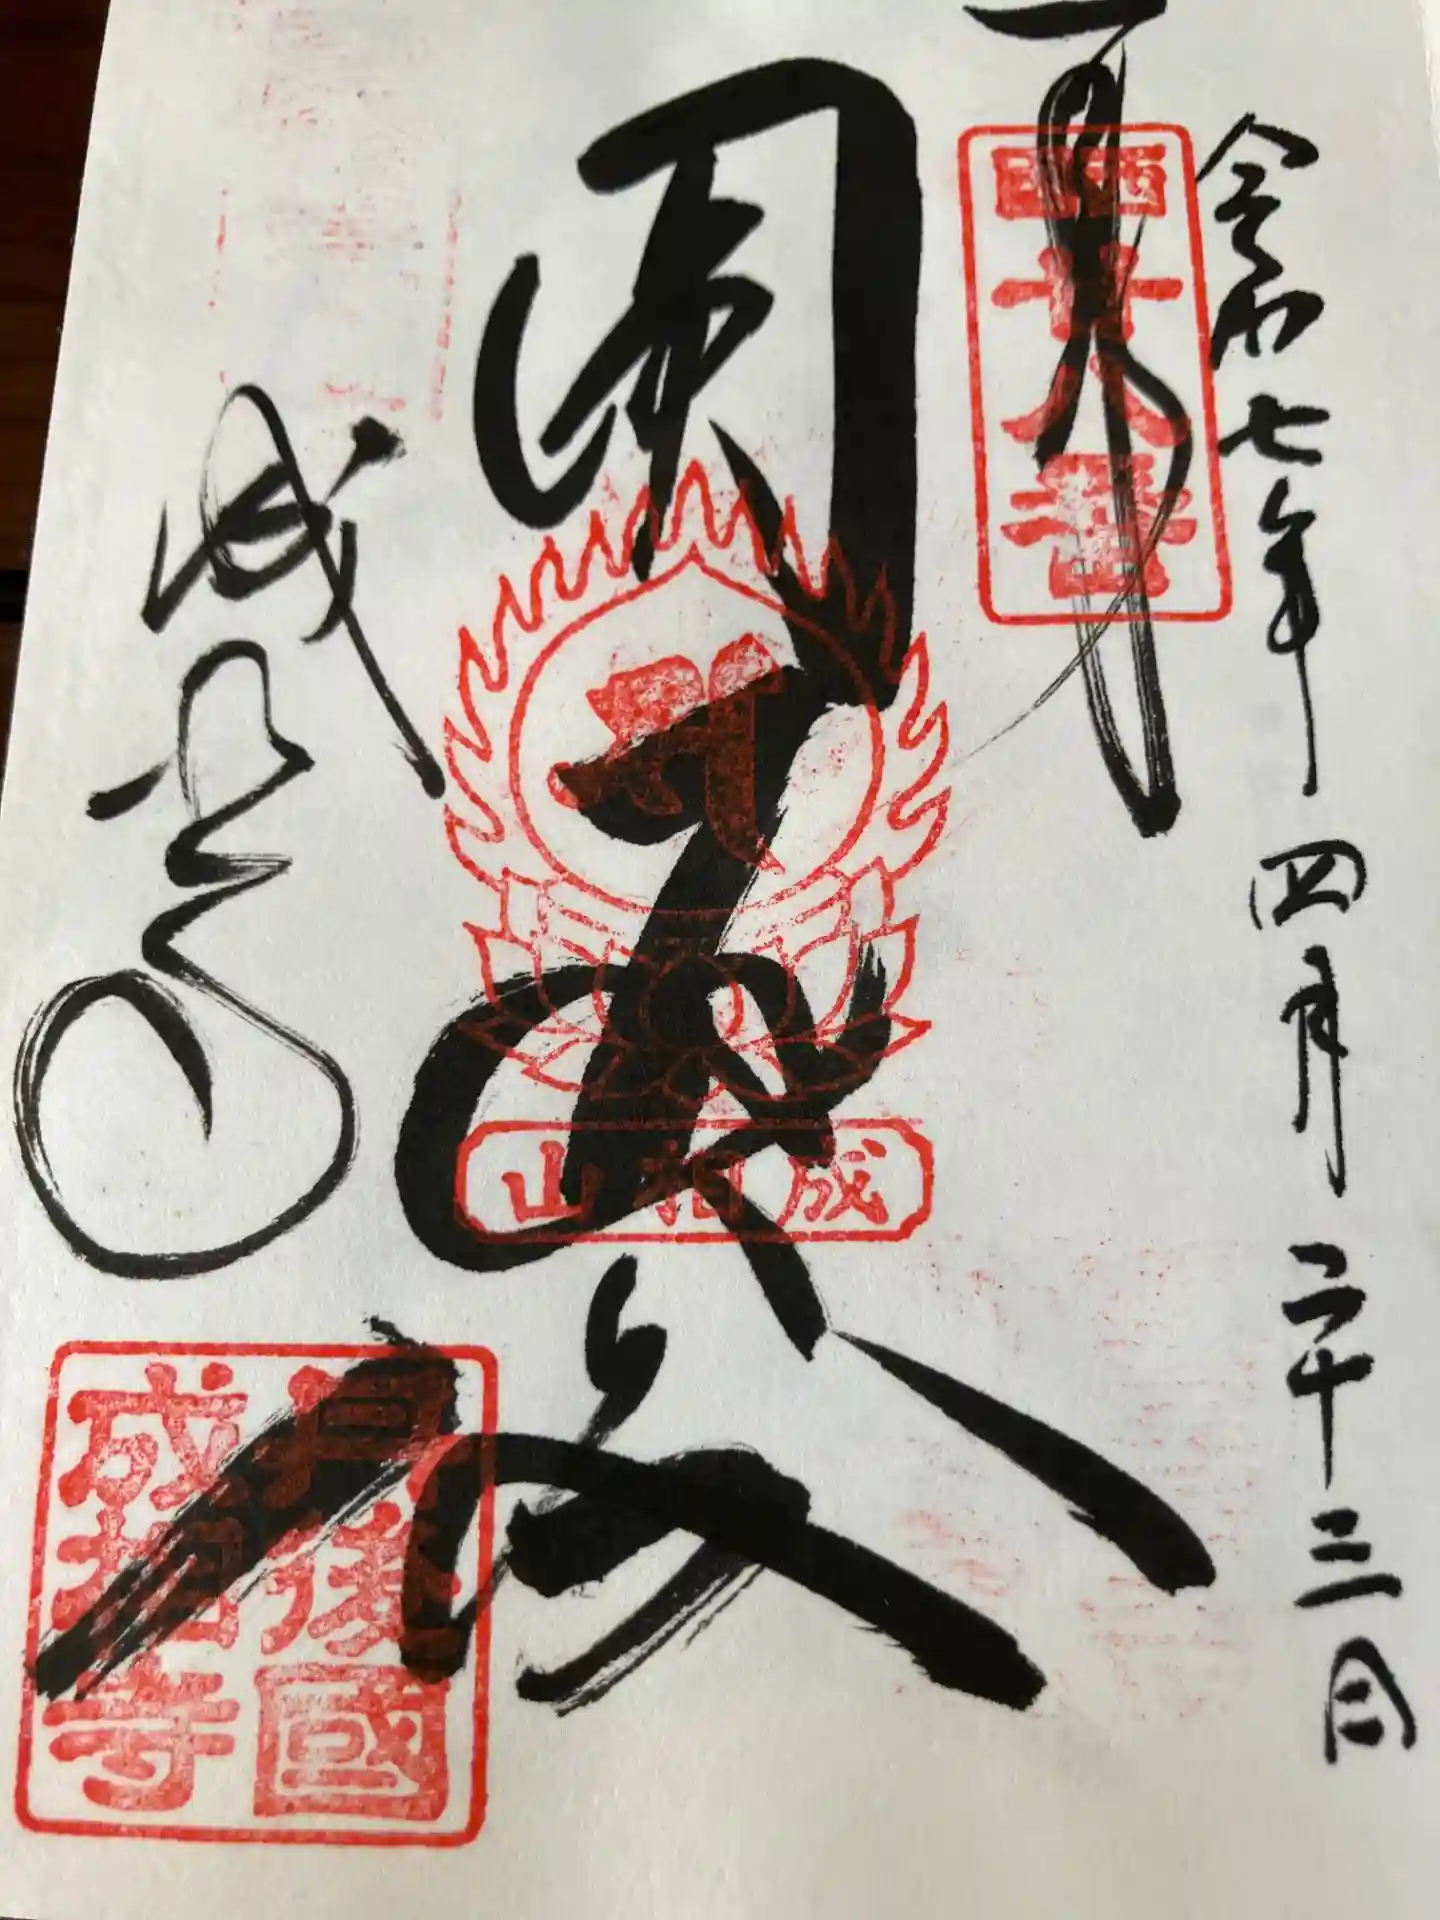 令和七年四月二十三日
奉拝
西國廿八番
成相山
成相寺
丹後國
成相寺